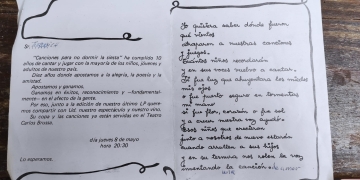 Sr.
"Canciones para no dormir la siesta" ha cumplido 10
años de cantar y jugar con la mayoría de los niños, jóvenes y
adultos de nuestro país.
Diez años donde apostamos a la alegría, la poesía y la
amistad.
Apostamos y ganamos.
Ganamos en éxitos, reconocimiento y –fundamental-
mente– en el gesto de la gente.
Por eso, junto a la edición de nuestro último LP quere-
mos compartir con Ud. nuestro espectáculo y nuestro vino.
Su copa y las canciones ya están servidas en el Teatro
Carlos Brussa.
día jueves 8 de mayo
hora 20:30
Lo esperamos.
Yo quisiera saber dónde fueron
qué vientos
atraparon a nuestras canciones
y juegos.
Cuántos niños recordarán
y en sus voces vuelvo a cantar.
Si fue luz que ahuyentara los miedos
mis ojos
o fue puerto seguro en tormentas
mi mano
si fue flor, corazón o fue sol
y a crecer nuestra voz ayudó
Esos niños que crecieron
junto a nosotros de nuevo estarán
cuando arrullen a sus hijos
y en su ternura nos roben la voz
inventando la canción de amor